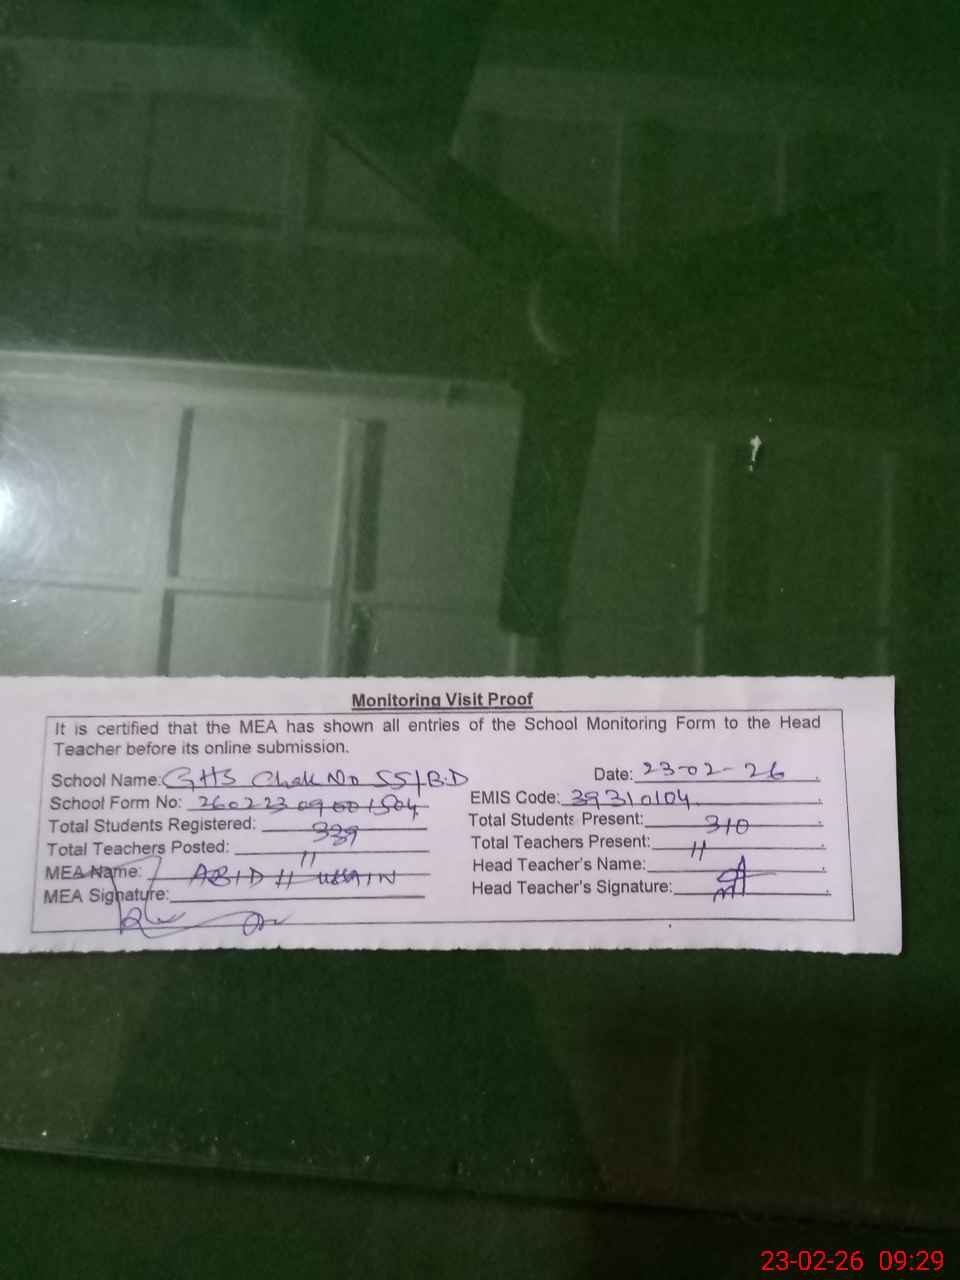 Monitoring Visit Proof
It is certified that the MEA has shown all entries of the School Monitoring Form to the Head
Teacher before its online submission.
School Name: GHS Chak No 55/B.D Date: 23-02-26
School Form No: 26022309001504 EMIS Code: 39310104
Total Students Registered: 339 Total Students Present: 310
Total Teachers Posted: 11 Total Teachers Present: 11
MEA Name: ABID HUSSAIN Head Teacher's Name:
MEA Signature: Head Teacher's Signature:
23-02-26 09:29